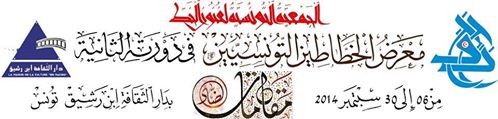 الجمعية التونسية لفنون الخط
معرض الخطاطين التونسيين في دورته الثانية
دار الثقافة ابن رشيق
LA MAISON DE LA CULTURE
من 06 إلى 30 سبتمبر 2014
مقامات
بدار الثقافة ابن رشيق تونس